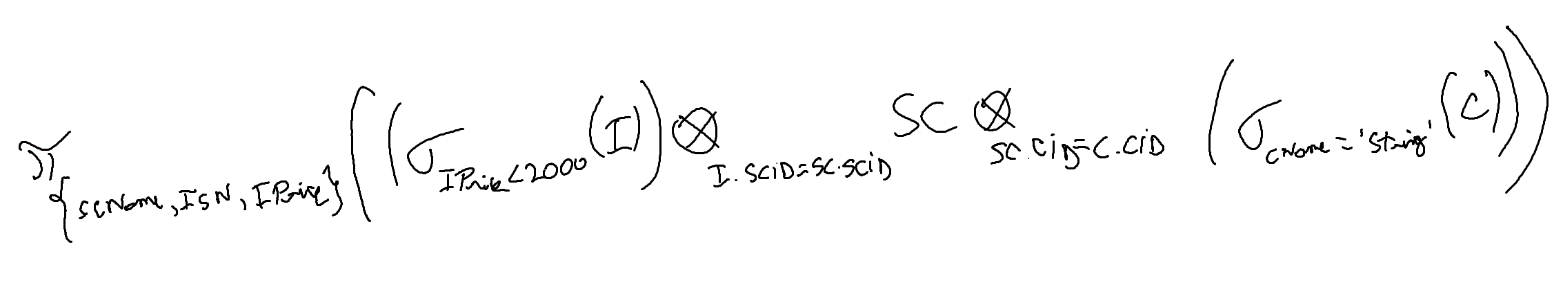 π{scName, ISN, IPrice}((σIPrice<2000(I))⊗I.SCiD=SC.SCiD SC⊗SC.CiD=C.CiD (σcName='String'(C)))